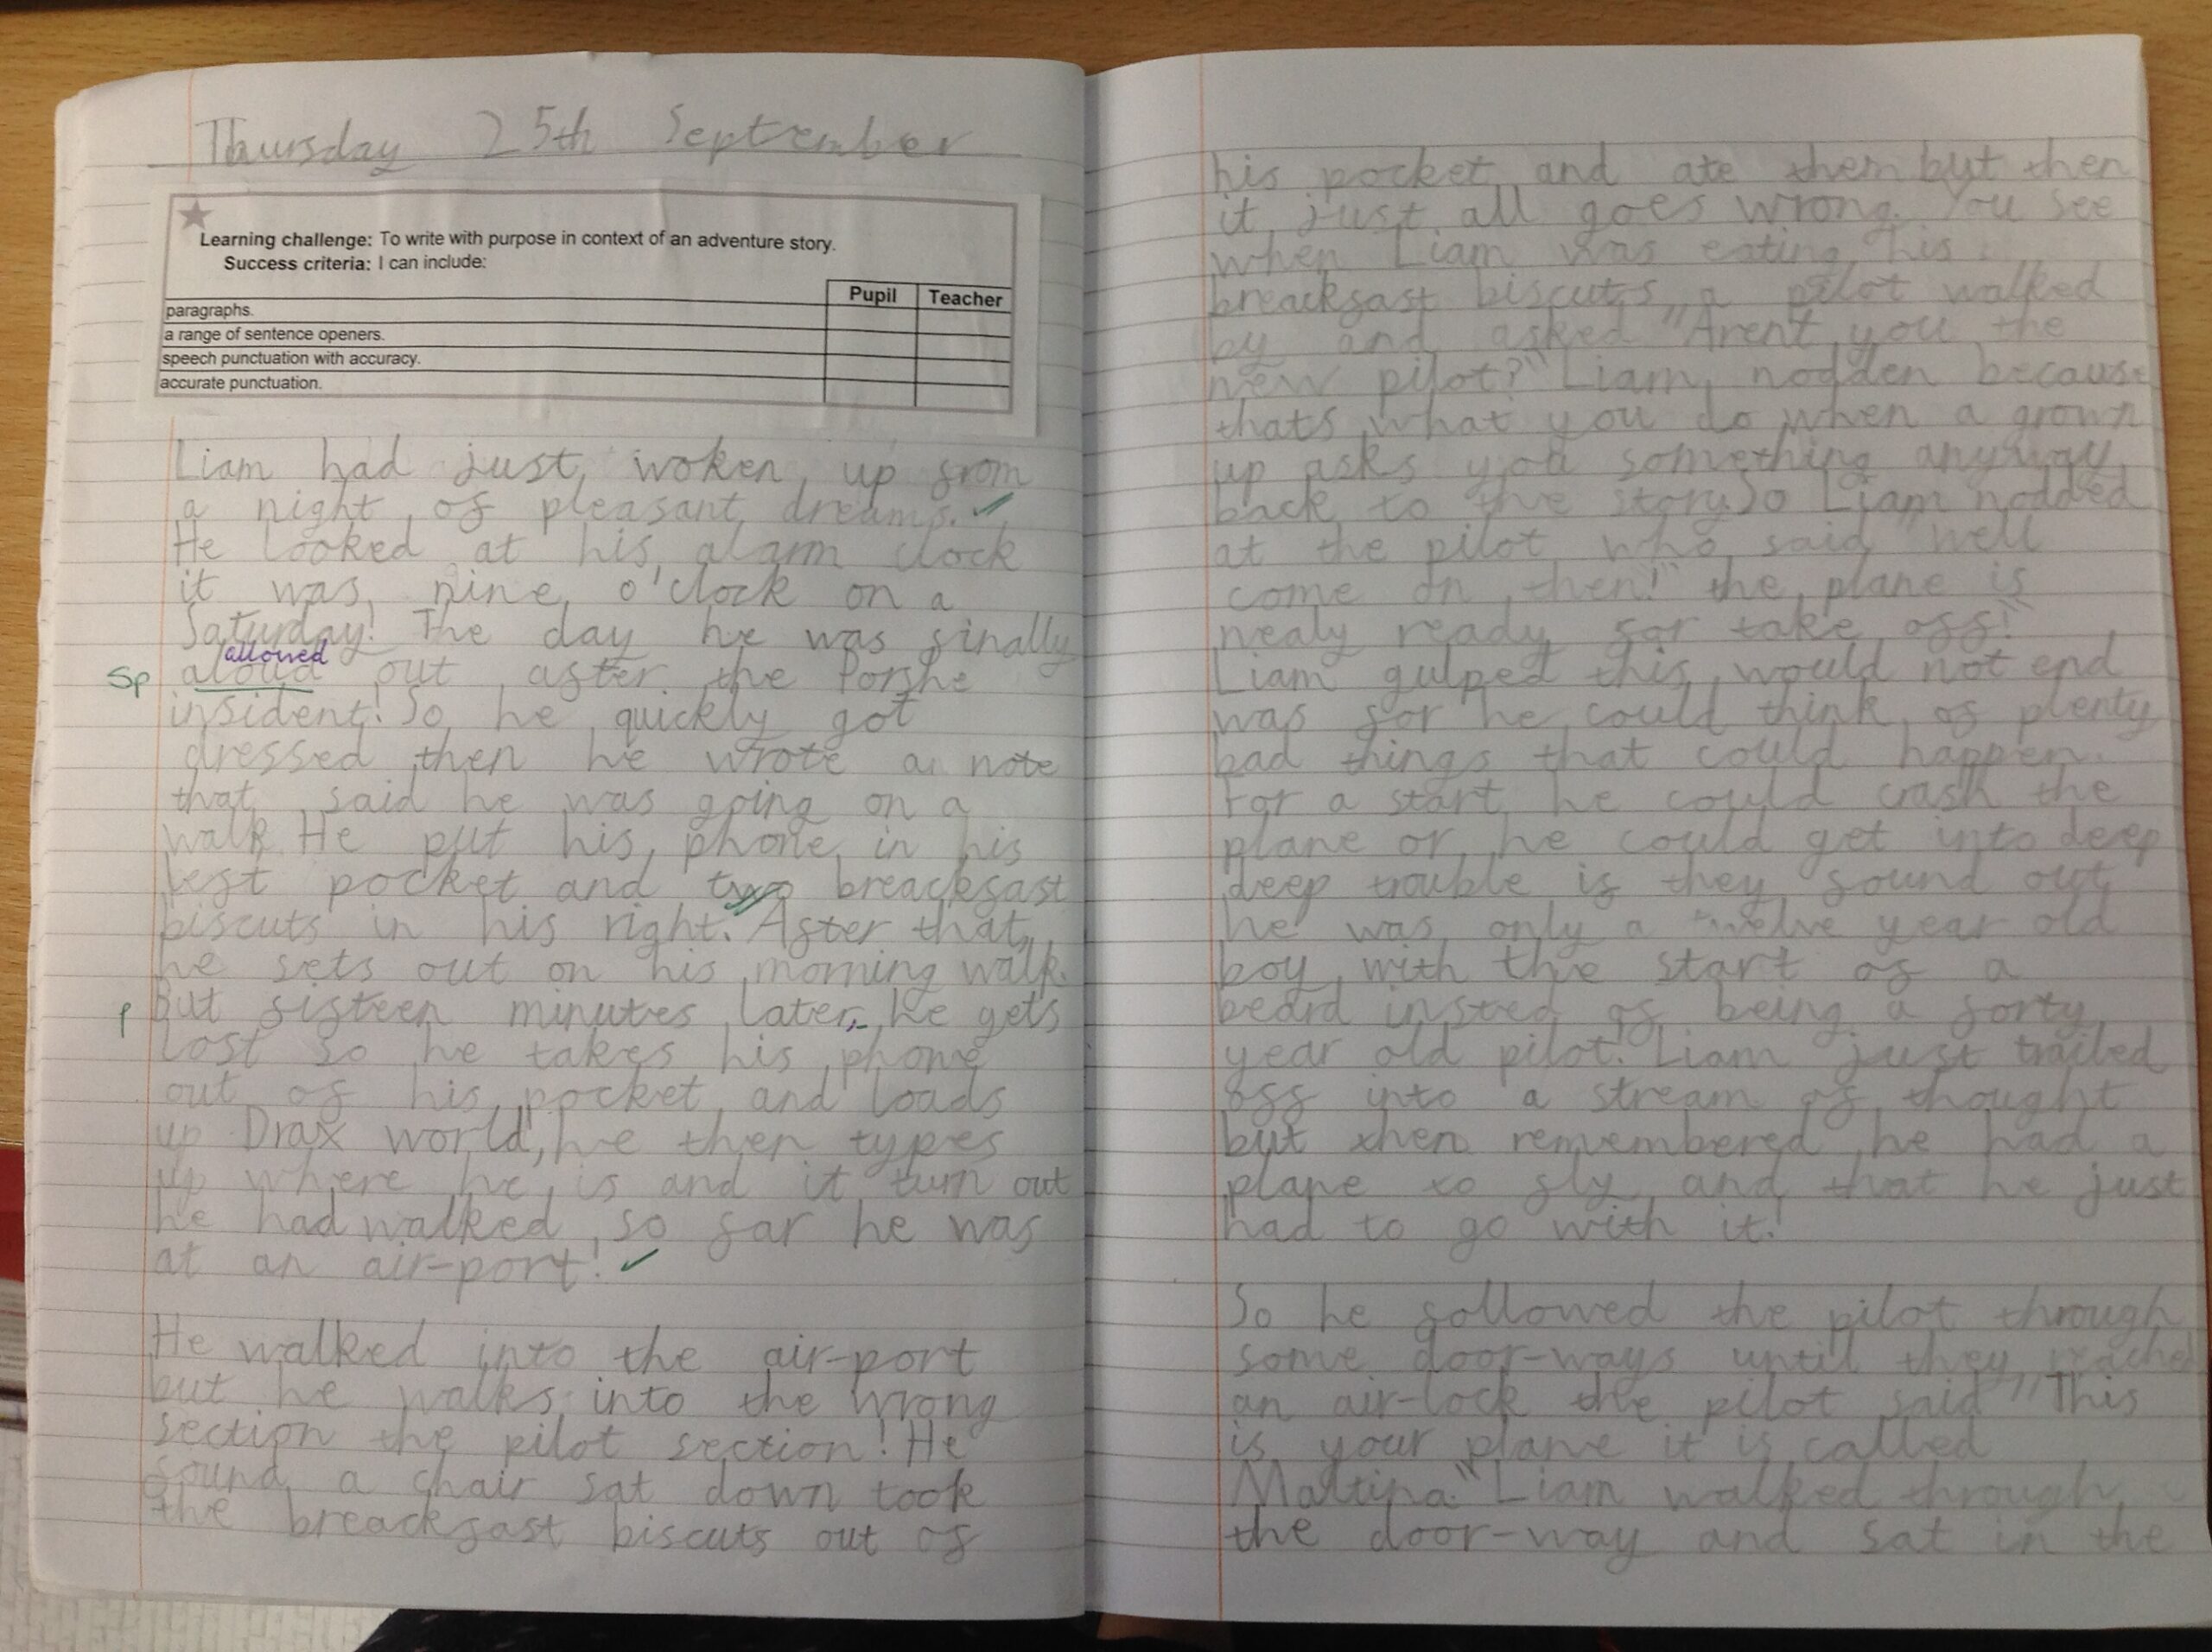 Thursday 25th September
Learning challenge: To write with purpose in context of an adventure story.
Success criteria: I can include:
Pupil Teacher
paragraphs.
a range of sentence openers.
speech punctuation with accuracy.
accurate punctuation.
Liam had just woken up from
a night of pleasant dreams. ✓
He looked at his alarm clock
it was nine o'clock on a
Saturday! The day he was finally
allowed
Sp aloud out after the Porshe
insident! So he quickly got
dressed then he wrote a note
that said he was going on a
walk. He put his phone in his
left pocket and two breackfast
biscuts in his right. After that,
he sets out on his morning walk.
P But sisteen minutes later, he gets
lost so he takes his phone
out of his pocket and loads
up Drax world, he then types
up where he is and it turn out
he had walked so far he was
at an air-port! ✓
He walked into the air-port
but he walks into the wrong
section the pilot section! He
found a chair sat down took
the breackfast biscuts out of
his pocket and ate them but then
it just all goes wrong. You see
when Liam was eating his
breackfast biscuts a pilot walked
by and asked "Arent you the
new pilot?" Liam nodden because
thats what you do when a grown
up asks you something anyway
back to the story. So Liam nodded
at the pilot who said "well
come on then!" the plane is
nealy ready for take off!"
Liam gulped this would not end
was for he could think of plenty
bad things that could happen.
For a start he could crash the
plane or he could get into deep
deep trouble if they found out
he was only a twelve year old
boy with the start of a
beard insted of being a forty
year old pilot! Liam just trailed
off into a stream of thought
but then remembered he had a
plane to fly and that he just
had to go with it!
So he followed the pilot through
some door-ways until they reached
an air-lock the pilot said "This
is your plane it is called
Maltina." Liam walked through
the door-way and sat in the